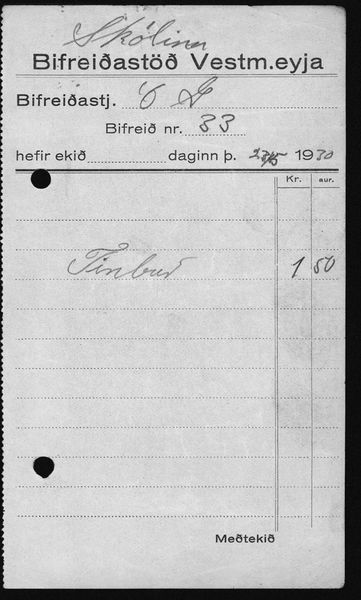 Skólinn
Bifreiðastöð Vestm.eyja
Bifreiðastj. Ó G
Bifreið nr. 33
hefir ekið daginn þ. 23/5 1930
Kr. aur.
1 50
Meðtekið